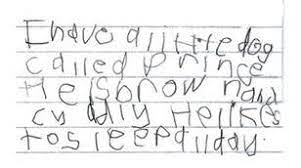 I have a little dog
called prince
He is brown and
cudly He likes
to sleep all day.